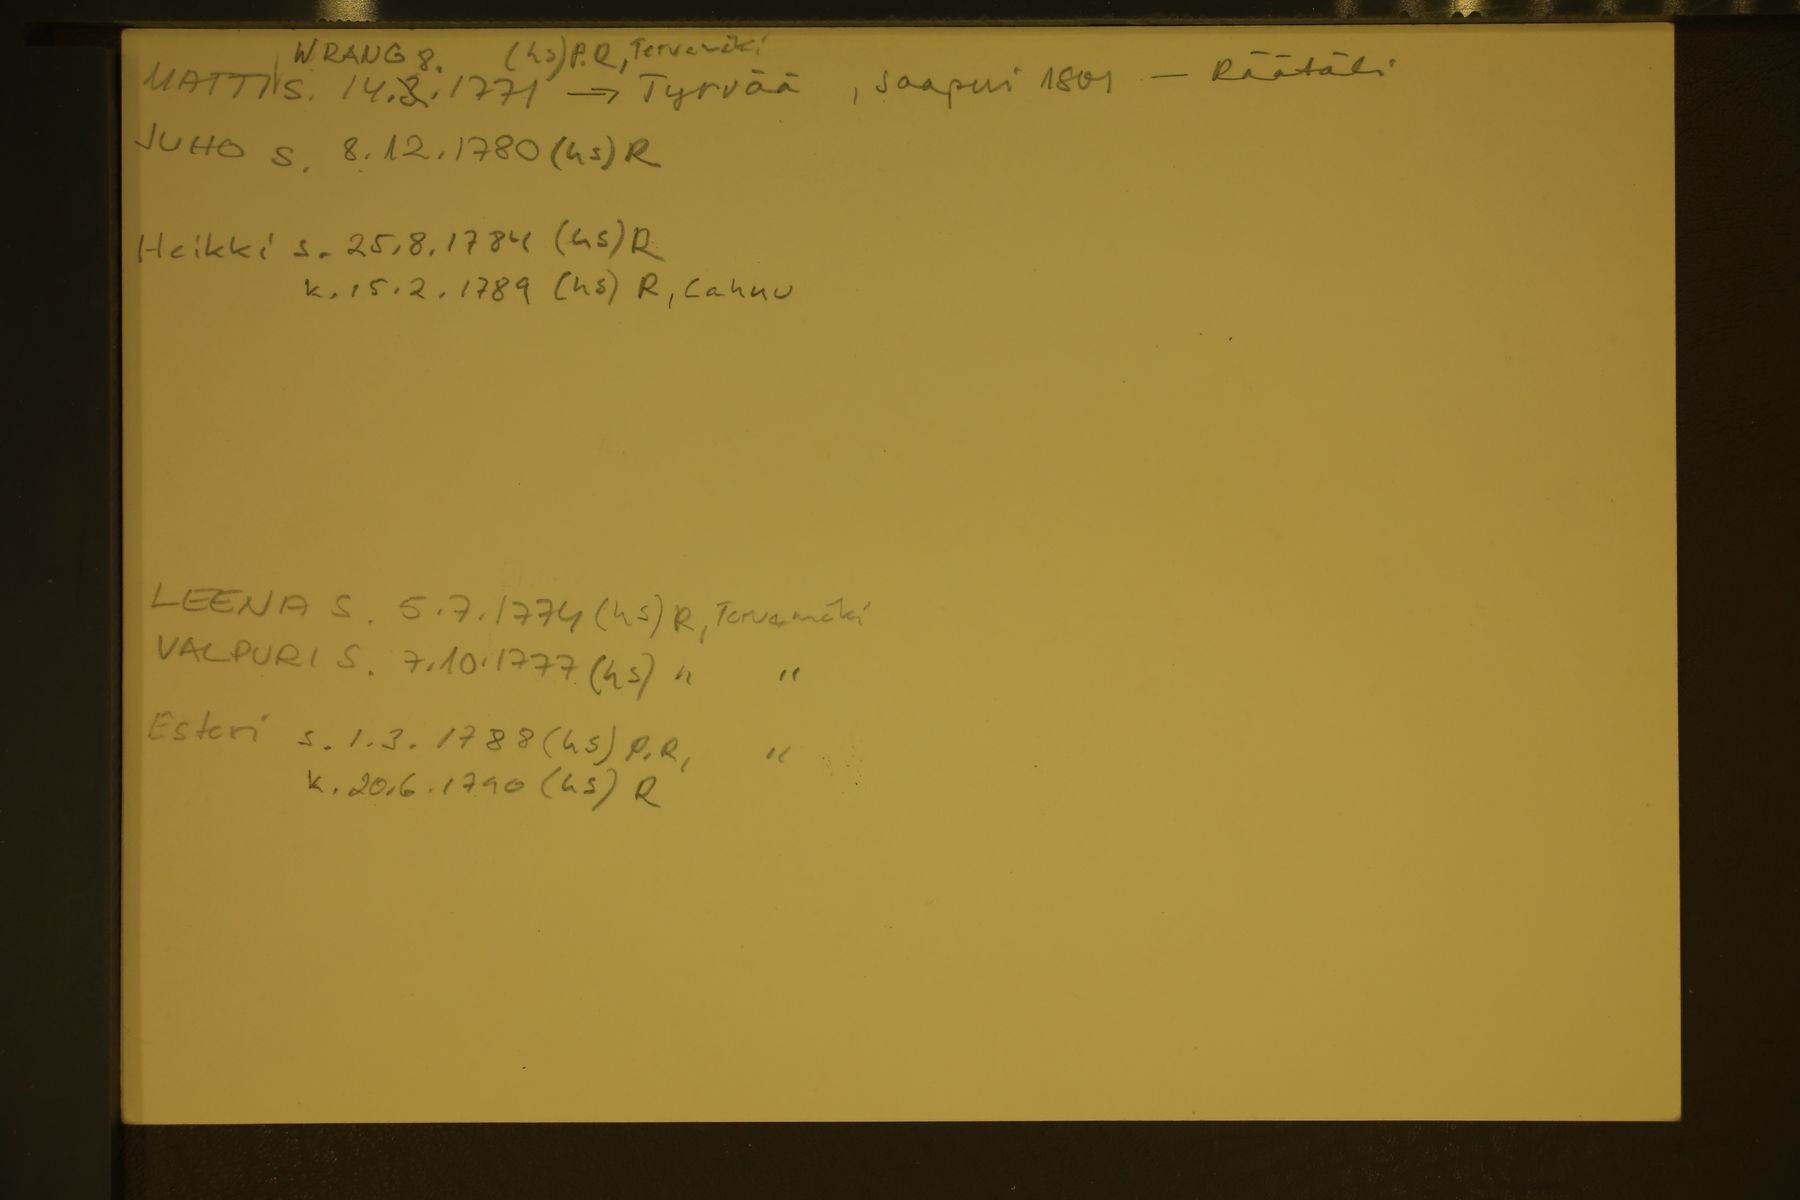 WRANG 8. (hs) P.R, Tervamäki
MATTI S. 14.3.1771 → Tyrvää , saapui 1801 — Räätäli
JUHO S. 8.12.1780 (hs) R
Heikki s. 25.8.1784 (hs) R
k. 15.2.1789 (hs) R, Lahnu
LEENA S. 5.7.1774 (hs) R, Tervamäki
VALPURI S. 7.10.1777 (hs) " "
Esteri s. 1.3.1788 (hs) P.R, "
k. 20.6.1790 (hs) R